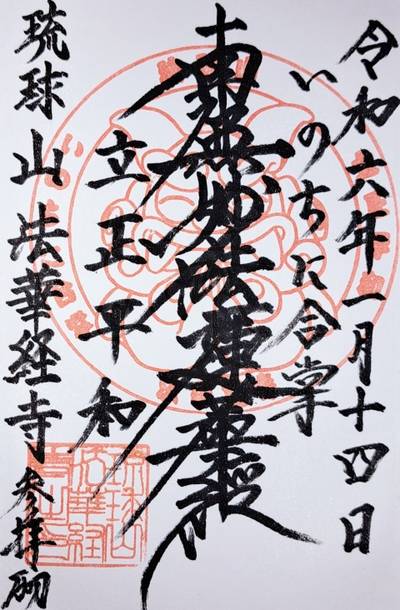 令和六年一月十四日
いのちに合掌
南無妙法蓮華経
立正平和
琉球山法華経寺参拝砌